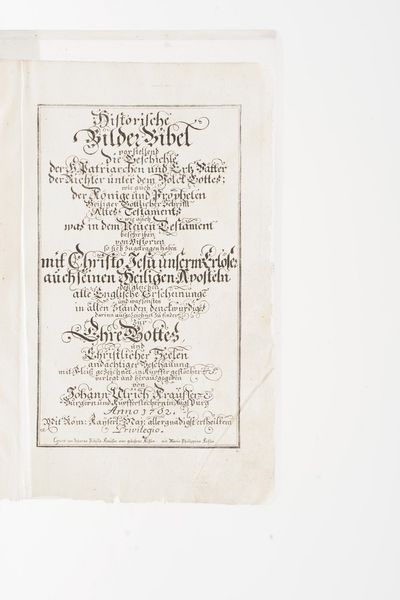 Historische
Bilder Bibel
vorstellend
die Geschichte
der H. Patriarchen und Ertz Vätter
der Richter unter dem Volck Gottes;
wie auch
der Könige und Propheten
Heiliger Göttlicher Schrifft
Altes Testaments
wie auch
was in dem Neuen Testament
beschriben
von Historien
so sich zugetragen haben
mit Christo Jesu unserm Erlöser
auch seinen Heiligen Aposteln
desgleichen
alle Englische Erscheinunge
und was sonsten
in allen Ständen denckwürdiges
darinn auffgezeichnet zu finden
zur
Ehre Gottes
und
Christlicher Seelen
andächtiger Beschauung
mit Fleiß gezeichnet in Kupffer gestochen
verlegt und herausgegeben
von
Johann Ulrich Kraussen
Burgern und Kupfferstechern in Augspurg
Anno 1702.
Mit Röm: Kayserl: Maj: allergnädigst ertheiltem
Privilegio.